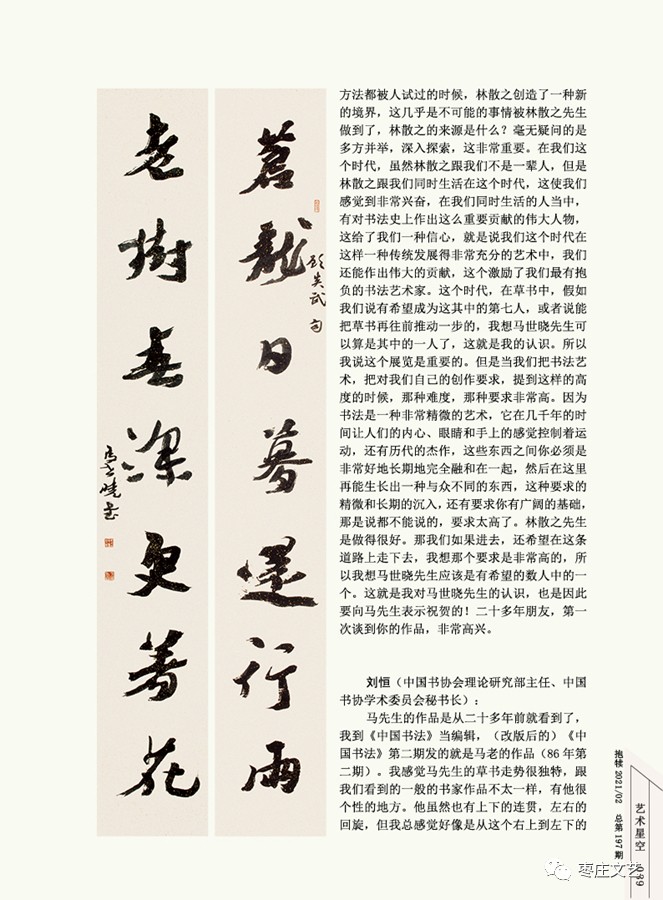 蒼龍日暮還行雨
顧炎武句
老樹春深更著花
馬世曉書
方法都被人试过的时候，林散之创造了一种新
的境界，这几乎是不可能的事情被林散之先生
做到了，林散之的来源是什么？毫无疑问的是
多方并举，深入探索，这非常重要。在我们这
个时代，虽然林散之跟我们不是一辈人，但是
林散之跟我们同时生活在这个时代，这使我们
感觉到非常兴奋，在我们同时生活的人当中，
有对书法史上作出这么重要贡献的伟大人物，
这给了我们一种信心，就是说我们这个时代在
这样一种传统发展得非常充分的艺术中，我们
还能作出伟大的贡献，这个激励了我们最有抱
负的书法艺术家。这个时代，在草书中，假如
我们说有希望成为这其中的第七人，或者说能
把草书再往前推动一步的，我想马世晓先生可
以算是其中的一人了，这就是我的认识。所以
我说这个展览是重要的。但是当我们把书法艺
术，把对我们自己的创作要求，提到这样的高
度的时候，那种难度，那种要求非常高。因为
书法是一种非常精微的艺术，它在几千年的时
间让人们的内心、眼睛和手上的感觉控制着运
动，还有历代的杰作，这些东西之间你必须是
非常好地长期地完全融和在一起，然后在这里
再能生长出一种与众不同的东西，这种要求的
精微和长期的沉入，还有要求你有广阔的基础，
那是说都不能说的，要求太高了。林散之先生
是做得很好。那我们如果进去，还希望在这条
道路上走下去，我想那个要求是非常高的，所
以我想马世晓先生应该是有希望的数人中的一
个。这就是我对马世晓先生的认识，也是因此
要向马先生表示祝贺的！二十多年朋友，第一
次谈到你的作品，非常高兴。
刘恒（中国书协会理论研究部主任、中国
书协学术委员会秘书长）：
马先生的作品是从二十多年前就看到了，
我到《中国书法》当编辑，（改版后的）《中
国书法》第二期发的就是马老的作品（86 年第
二期）。我感觉马先生的草书走势很独特，跟
我们看到的一般的书家作品不太一样，有他很
个性的地方。他虽然也有上下的连贯，左右的
回旋，但我总感觉好像是从这个右上到左下的
抱犊 2021/02 总第 197 期
艺术星空
089
枣庄文艺